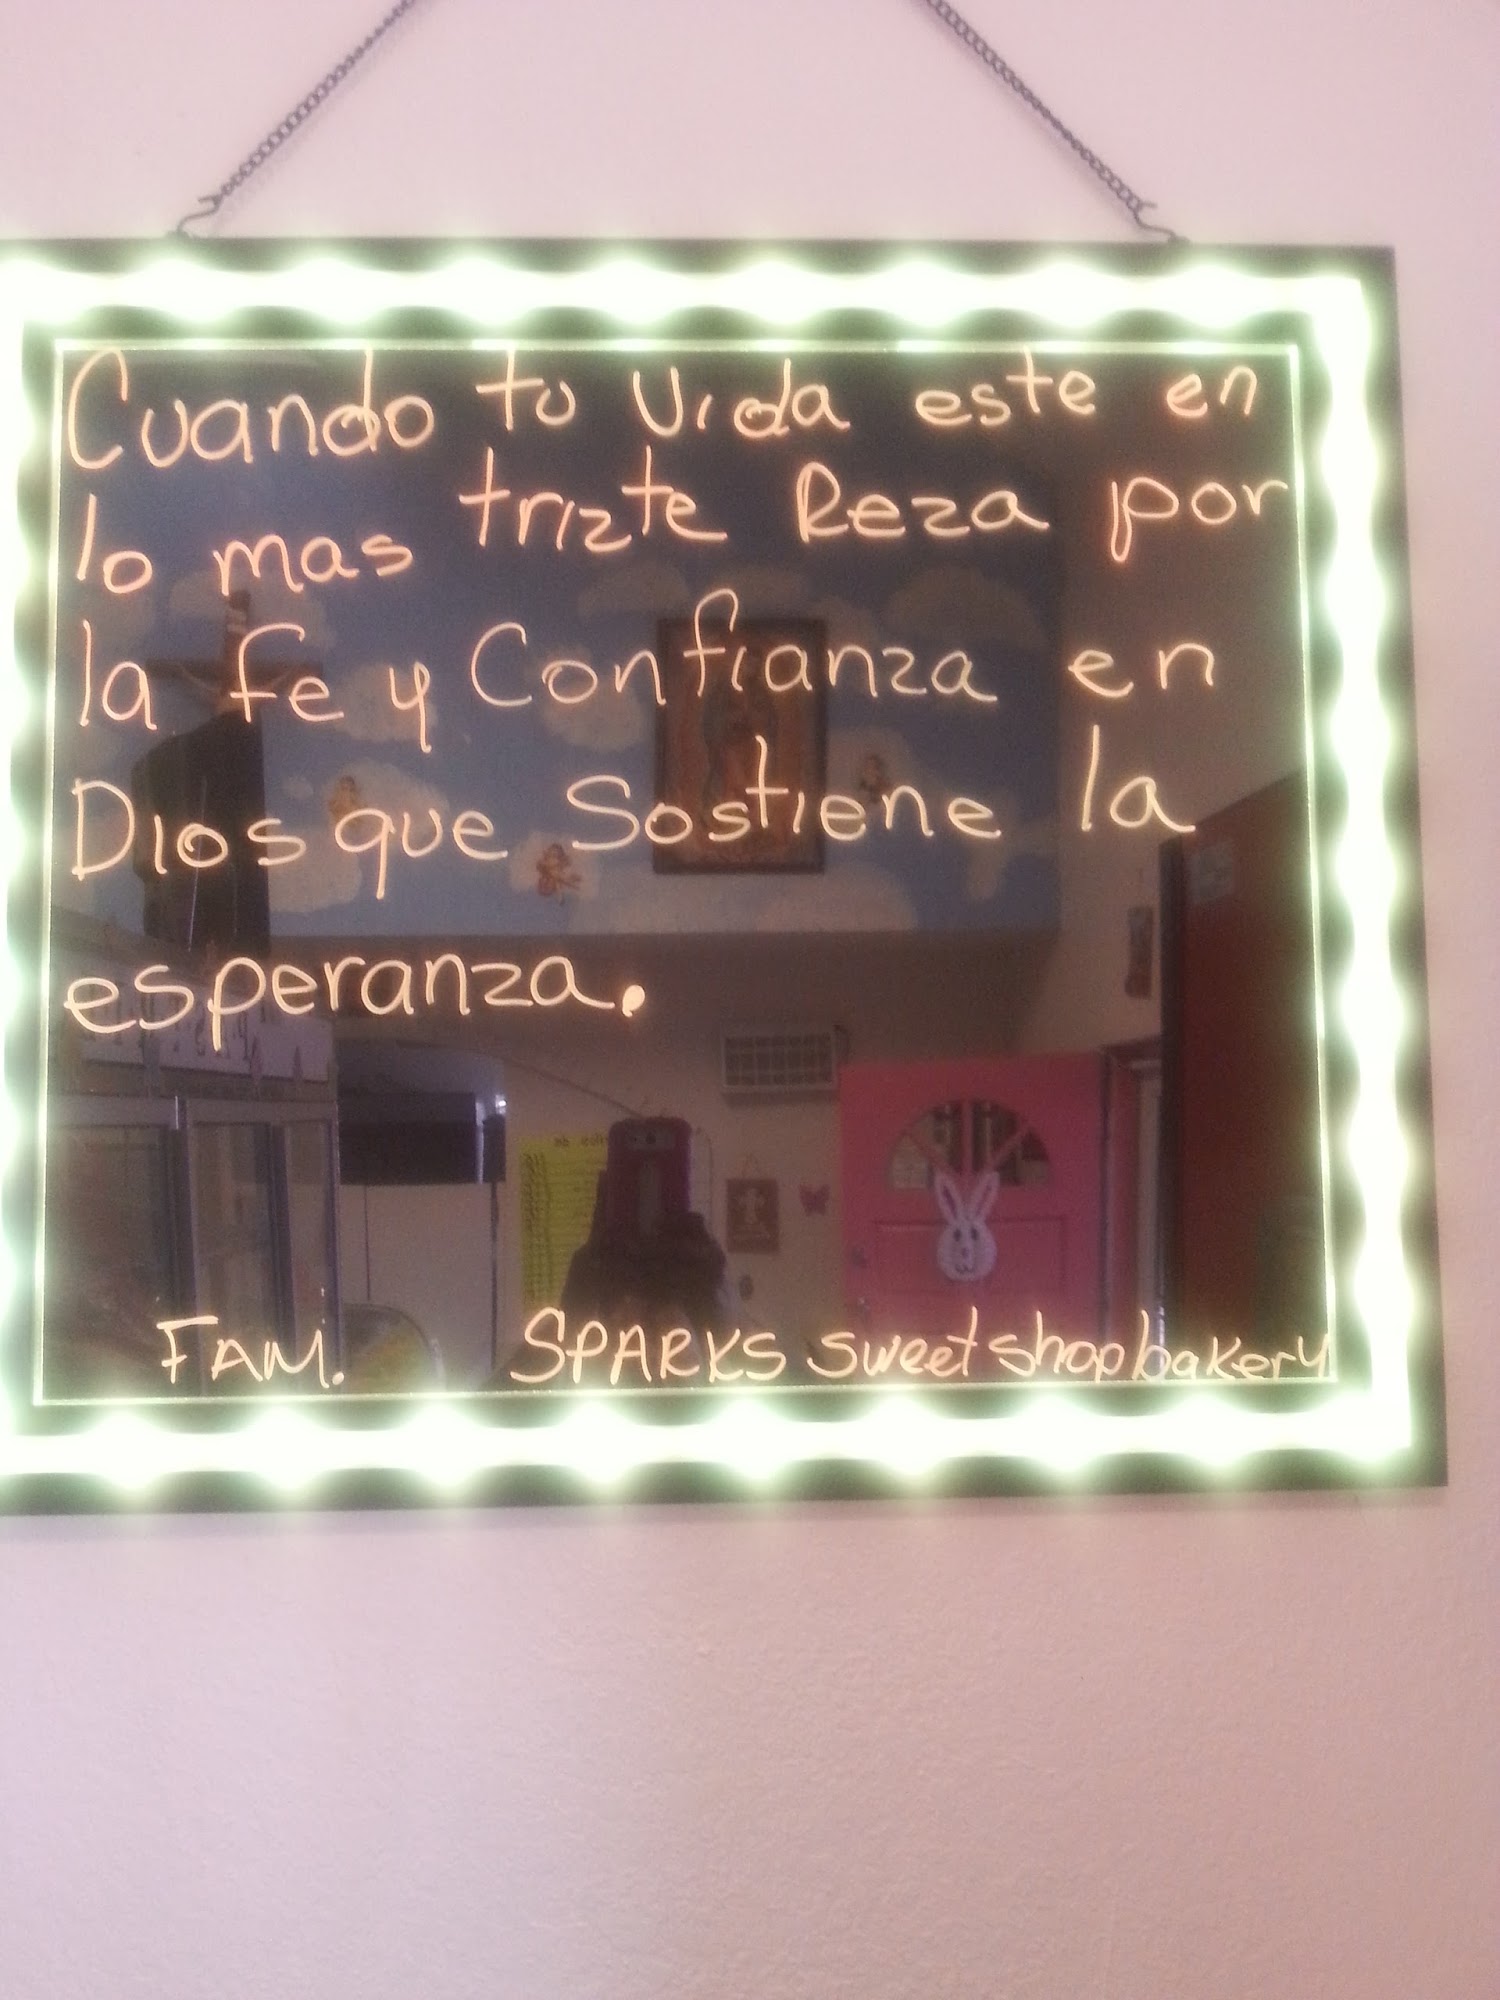 Cuando tu vida este en
lo mas trizte Reza por
la fe y Confianza en
Dios que Sostiene la
esperanza.
FAM. SPARKS sweet shop bakery